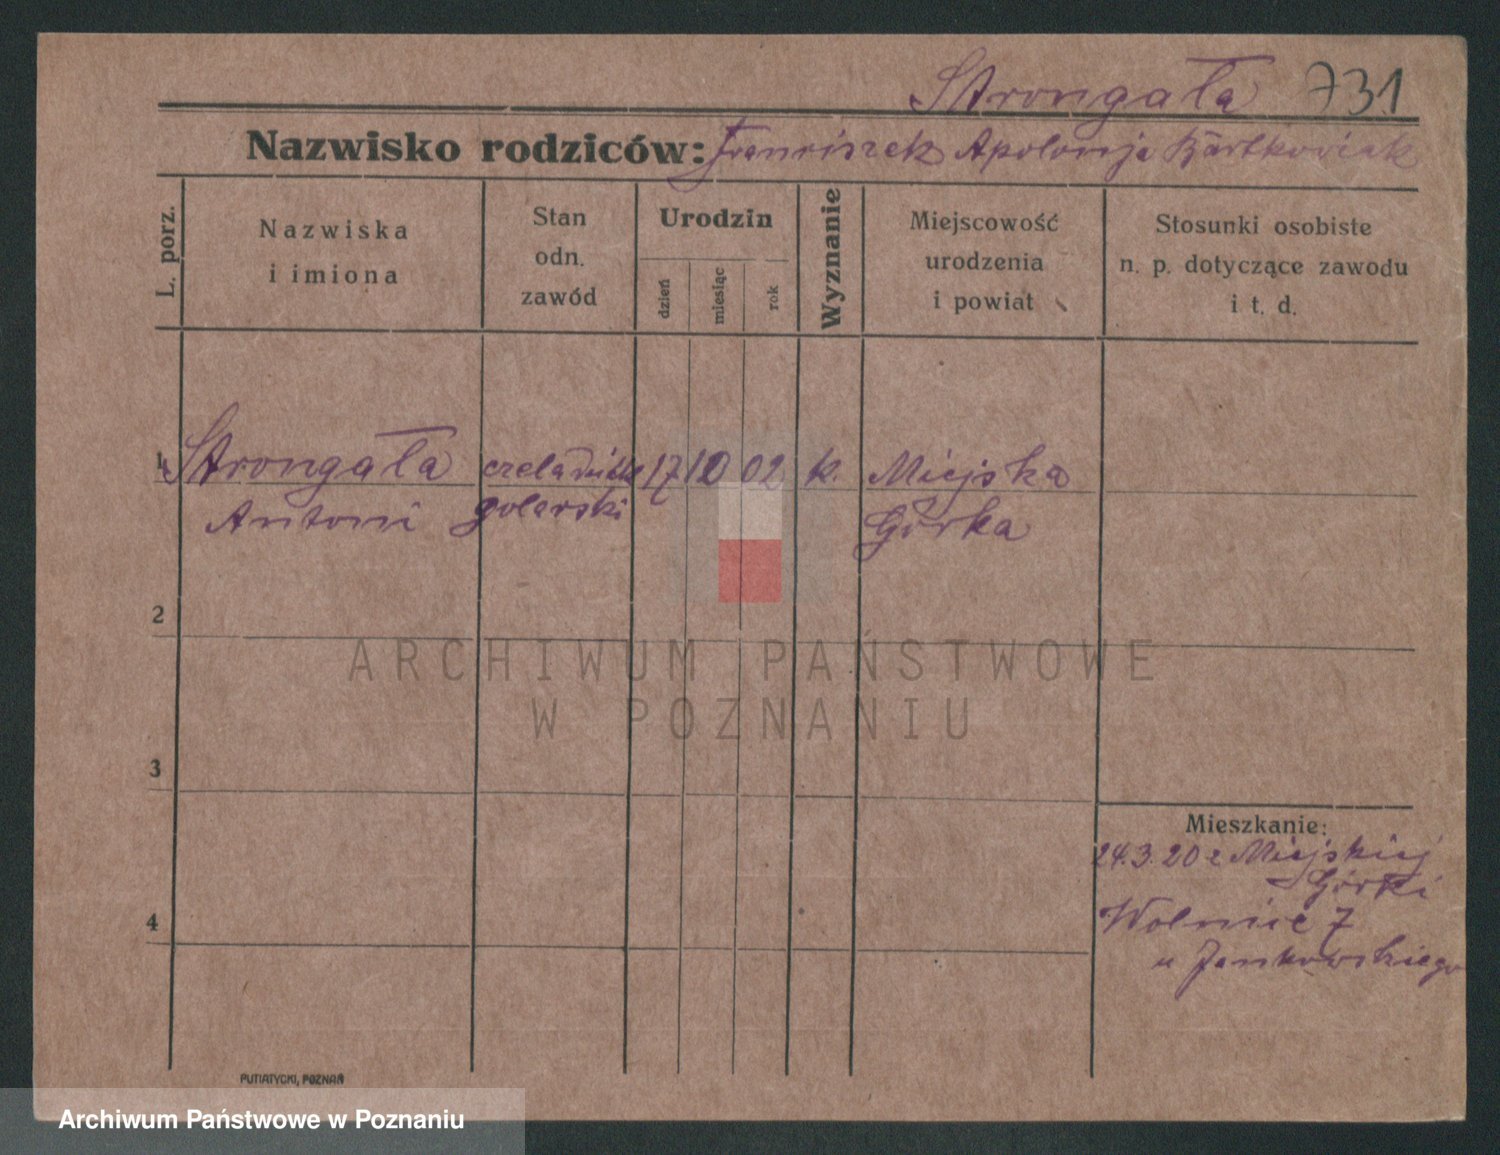 Strongała 731
Nazwisko rodziców: Franciszek Apolonja Bartkowiak
L. porz.
Nazwiska
i imiona
Stan
odn.
zawód
Urodzin
dzień
miesiąc
rok
Wyznanie
Miejscowość
urodzenia
i powiat
Stosunki osobiste
n. p. dotyczące zawodu
i t. d.
1 Strongała czeladnik 17 10 02 k. Miejska
Antoni golarski Górka
2
3
4
Mieszkanie:
24.3.20 z Miejskiej
Górki
Wolnice 7
u Jankowskiego
PUTIATYCKI, POZNAŃ
ARCHIWUM PAŃSTWOWE
W POZNANIU
Archiwum Państwowe w Poznaniu